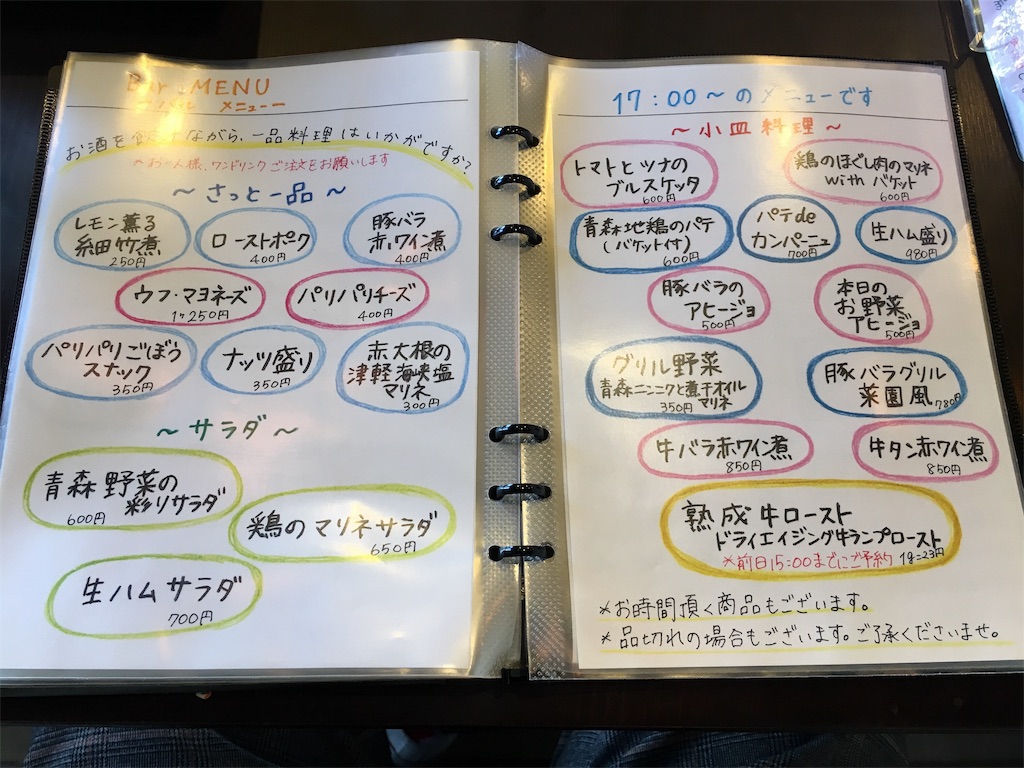 Bar MENU
メニュー
お酒を飲みながら、一品料理はいかがですか?
*お一人様、ワンドリンクご注文をお願いします
～さっと一品～
レモン薫る
細竹煮
250円
ローストポーク
400円
豚バラ
赤ワイン煮
400円
ウフ・マヨネーズ
1ヶ250円
パリパリチーズ
400円
パリパリごぼう
スナック
350円
ナッツ盛り
350円
赤大根の
津軽海峡塩
マリネ
300円
～サラダ～
青森野菜の
彩りサラダ
600円
鶏のマリネサラダ
650円
生ハムサラダ
700円
17:00～のメニューです
～小皿料理～
トマトとツナの
ブルスケッタ
600円
鶏のほぐし肉のマリネ
with バケット
600円
青森地鶏のパテ
(バケット付)
600円
パテde
カンパーニュ
700円
生ハム盛り
980円
豚バラの
アヒージョ
500円
本日の
お野菜
アヒージョ
500円
グリル野菜
青森ニンニクと煮干オイル
マリネ
350円
豚バラグリル
菜園風
780円
牛バラ赤ワイン煮
850円
牛タン赤ワイン煮
850円
熟成牛ロースト
ドライエイジング牛ランプロースト
*前日15:00までにご予約 1g=23円
*お時間頂く商品もございます。
*品切れの場合もございます。ご了承くださいませ。